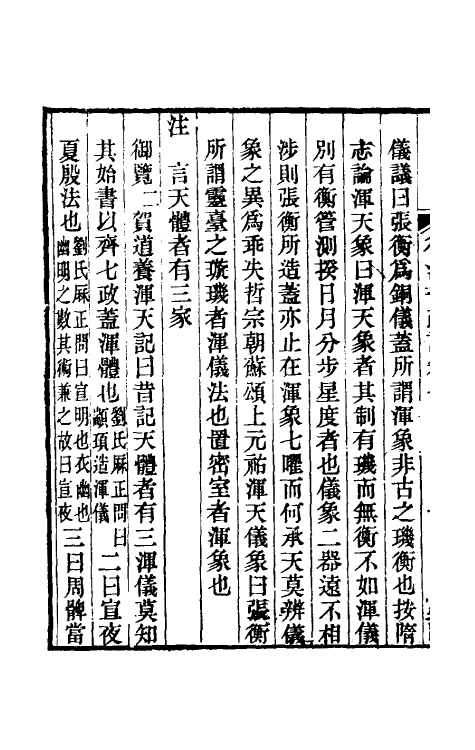 儀議曰張衡爲銅儀蓋所謂渾象非古之璣衡也按隋
志論渾天象曰渾天象者其制有璣而無衡不如渾儀
別有衡管測揆日月分步星度者也儀象二器遠不相
涉則張衡所造蓋亦止在渾象七曜而何承天莫辨儀
象之異爲乖失哲宗朝蘇頌上元祐渾天儀象曰張衡
所謂靈臺之璇璣者渾儀法也置密室者渾象也
注 言天體者有三家
御覽二賀道養渾天記曰昔記天體者有三渾儀莫知
其始書以齊七政蓋渾體也劉氏厤正問曰顓頊造渾儀二曰宣夜
夏殷法也劉氏厤正問曰宣明也夜幽也幽明之數其術兼之故曰宣夜三曰周髀當